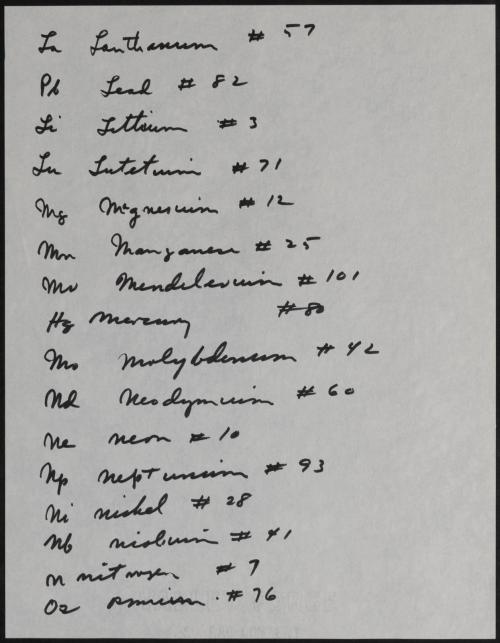 La Lanthanum # 57
Pb Lead # 82
Li Littium # 3
Lu Lutetium # 71
Mg Magnesium # 12
Mn Manganese # 25
Mv Mendelevium # 101
Hg mercury # 80
Mo molybdenum # 42
Nd Neodymium # 60
Ne neon # 10
Np neptunium # 93
Ni nickel # 28
Nb niobium # 41
n nitrogen # 7
Os osmium # 76